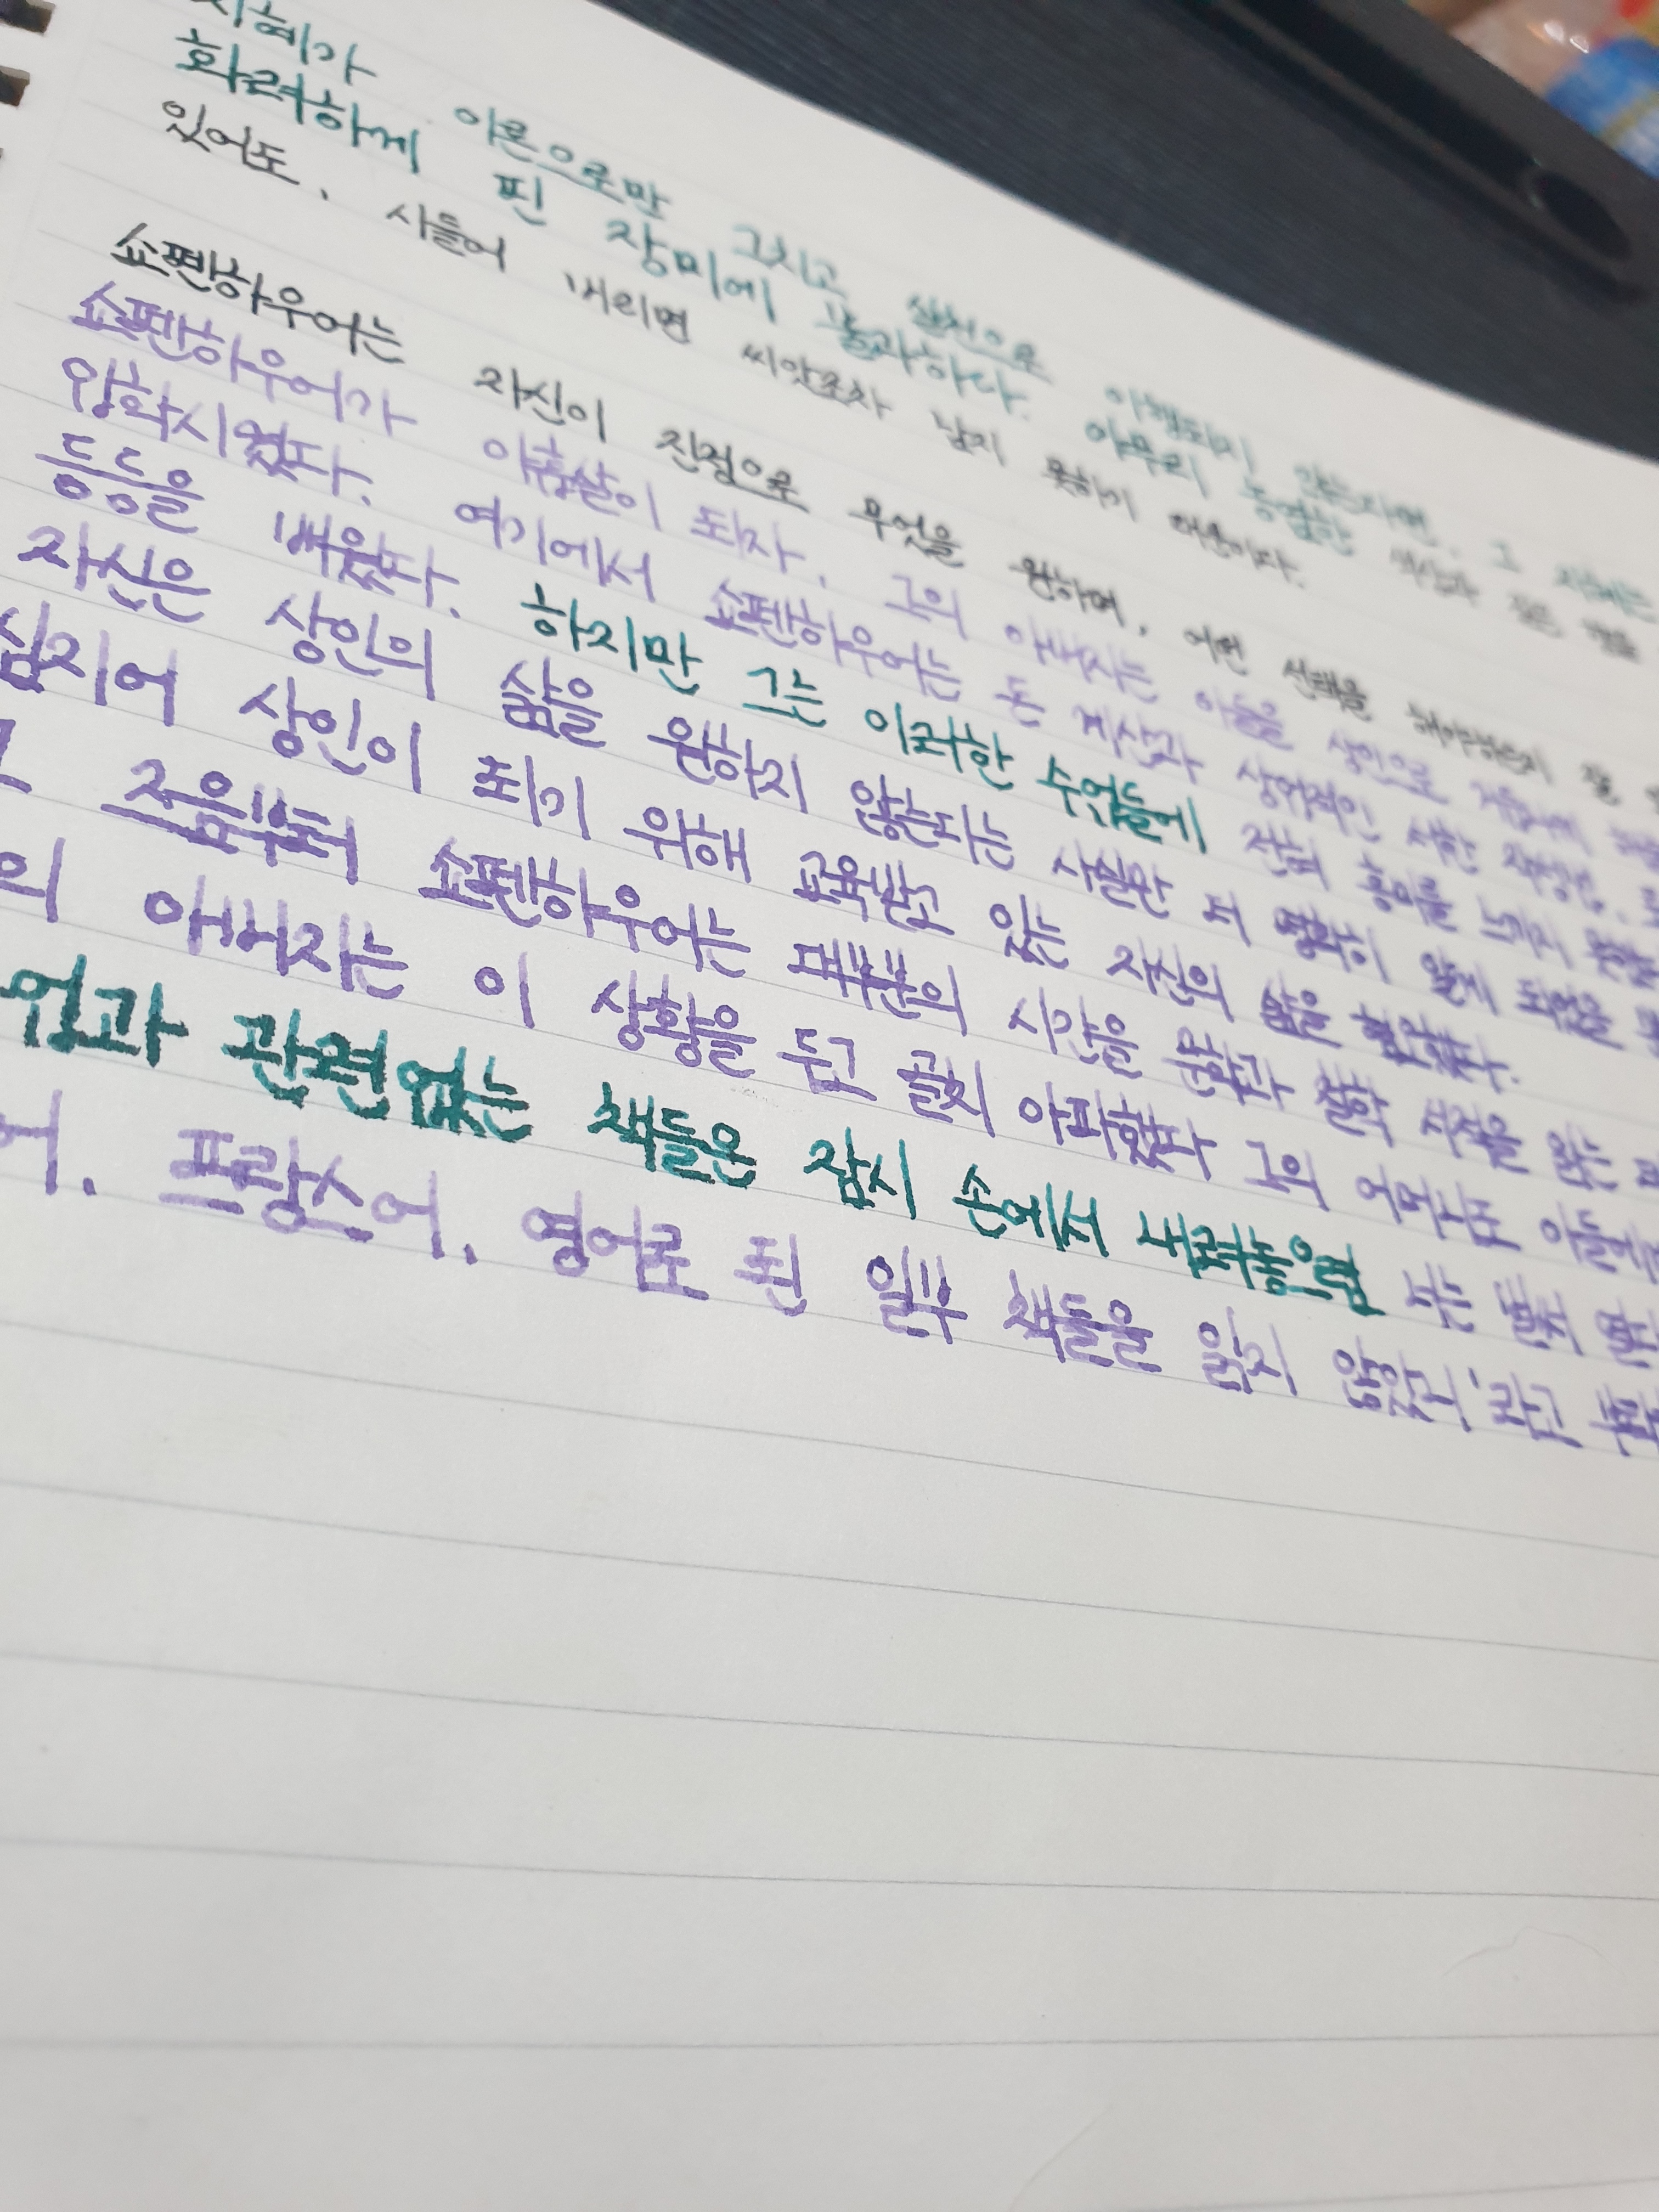 지혜가 이론으로만 그치고 실천으로 이행되지 않는다면, 그 지혜는
화려하게 핀 장미에 불과하다. 아무리 농염한 색상과 짙은 향을
있어도, 시들어 버리면 씨앗조차 남지 못하기 때문이다.
쇼펜하우어는 자신이 진정으로 무엇을 원하며, 어떤 선택을 해야하는지 잘
쇼펜하우어가 아홉살이 되자, 그의 아버지는 아들을 상인으로 키우기위해
입학시켰다. 여기에서 쇼펜하우어는 돈 계산과 상업적인 서한 작성법,
등등을 배웠다. 하지만 그는 이러한 수업들에 전혀 흥미를 느끼지 못했
자신은 상인의 삶을 원하지 않는다는 사실만 더 명확히 알게 되었을
심지어 상인이 되기 위해 교육받고 있는 자신의 삶을 혐오했다.
처음부터 쇼펜하우어는 대부분의 시간을 문학과 철학 서적을 읽는
의 아버지는 이 상황을 두고 골치 아파했다 그의 어머니도 아들에게
업과 관련없는 책들은 잠시 손에서 내려놓으렴 너는 벌써
어, 프랑스어, 영어로 된 일부 책들을 읽지 않았니'라고